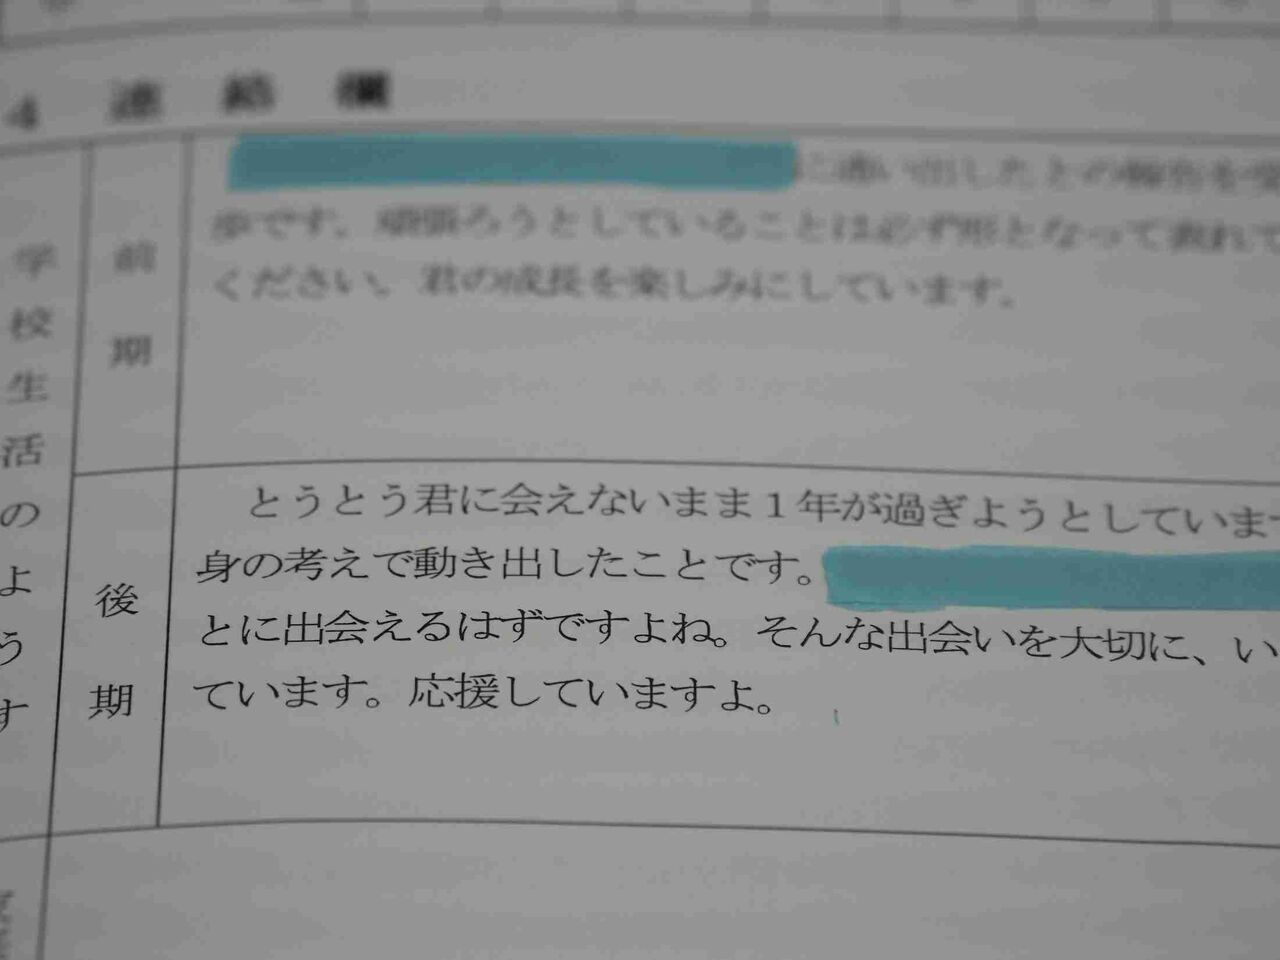 4 連絡欄
学校生活のようす
前期
に通い出したとの報告を受
歩です。頑張ろうとしていることは必ず形となって表れて
ください。君の成長を楽しみにしています。
後期
とうとう君に会えないまま1年が過ぎようとしていま
身の考えで動き出したことです。
とに出会えるはずですよね。そんな出会いを大切に、い
ています。応援していますよ。